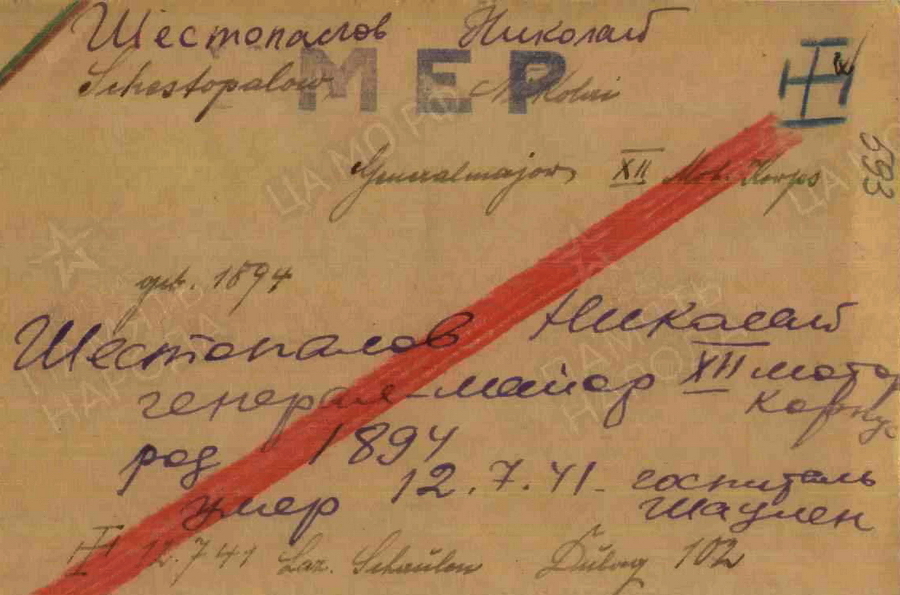 Шестопалов Николай
МЕР
Schestopalow Nikolai
593
Generalmajor XII Mot. Korps
geb. 1894
Шестопалов Николай
генерал-майор XII мотор
корпус
род 1894
умер 12.7.41. госпиталь
Шаулен
12.7.41 Laz. Schaulen Dulag 102